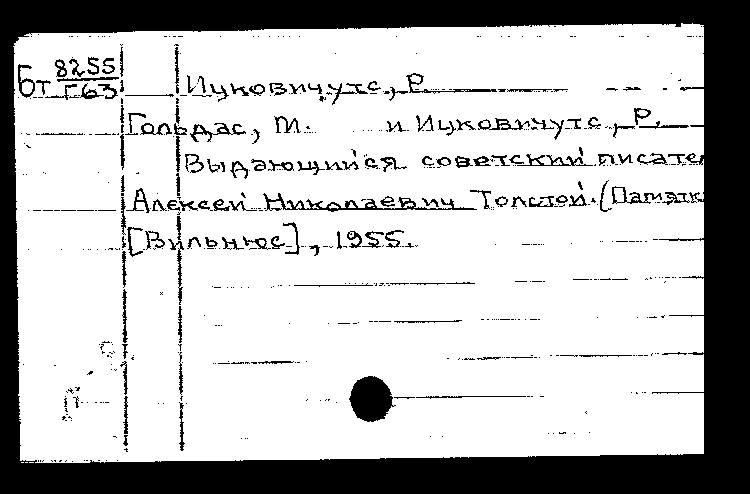 Бт 8255 Ицковичутс, Р.
Г63
Гольдас, М. и Ицковичутс, Р.
Выдающийся советский писате
Алексей Николаевич Толстой. (Памятк
[Вильнюс], 1955.